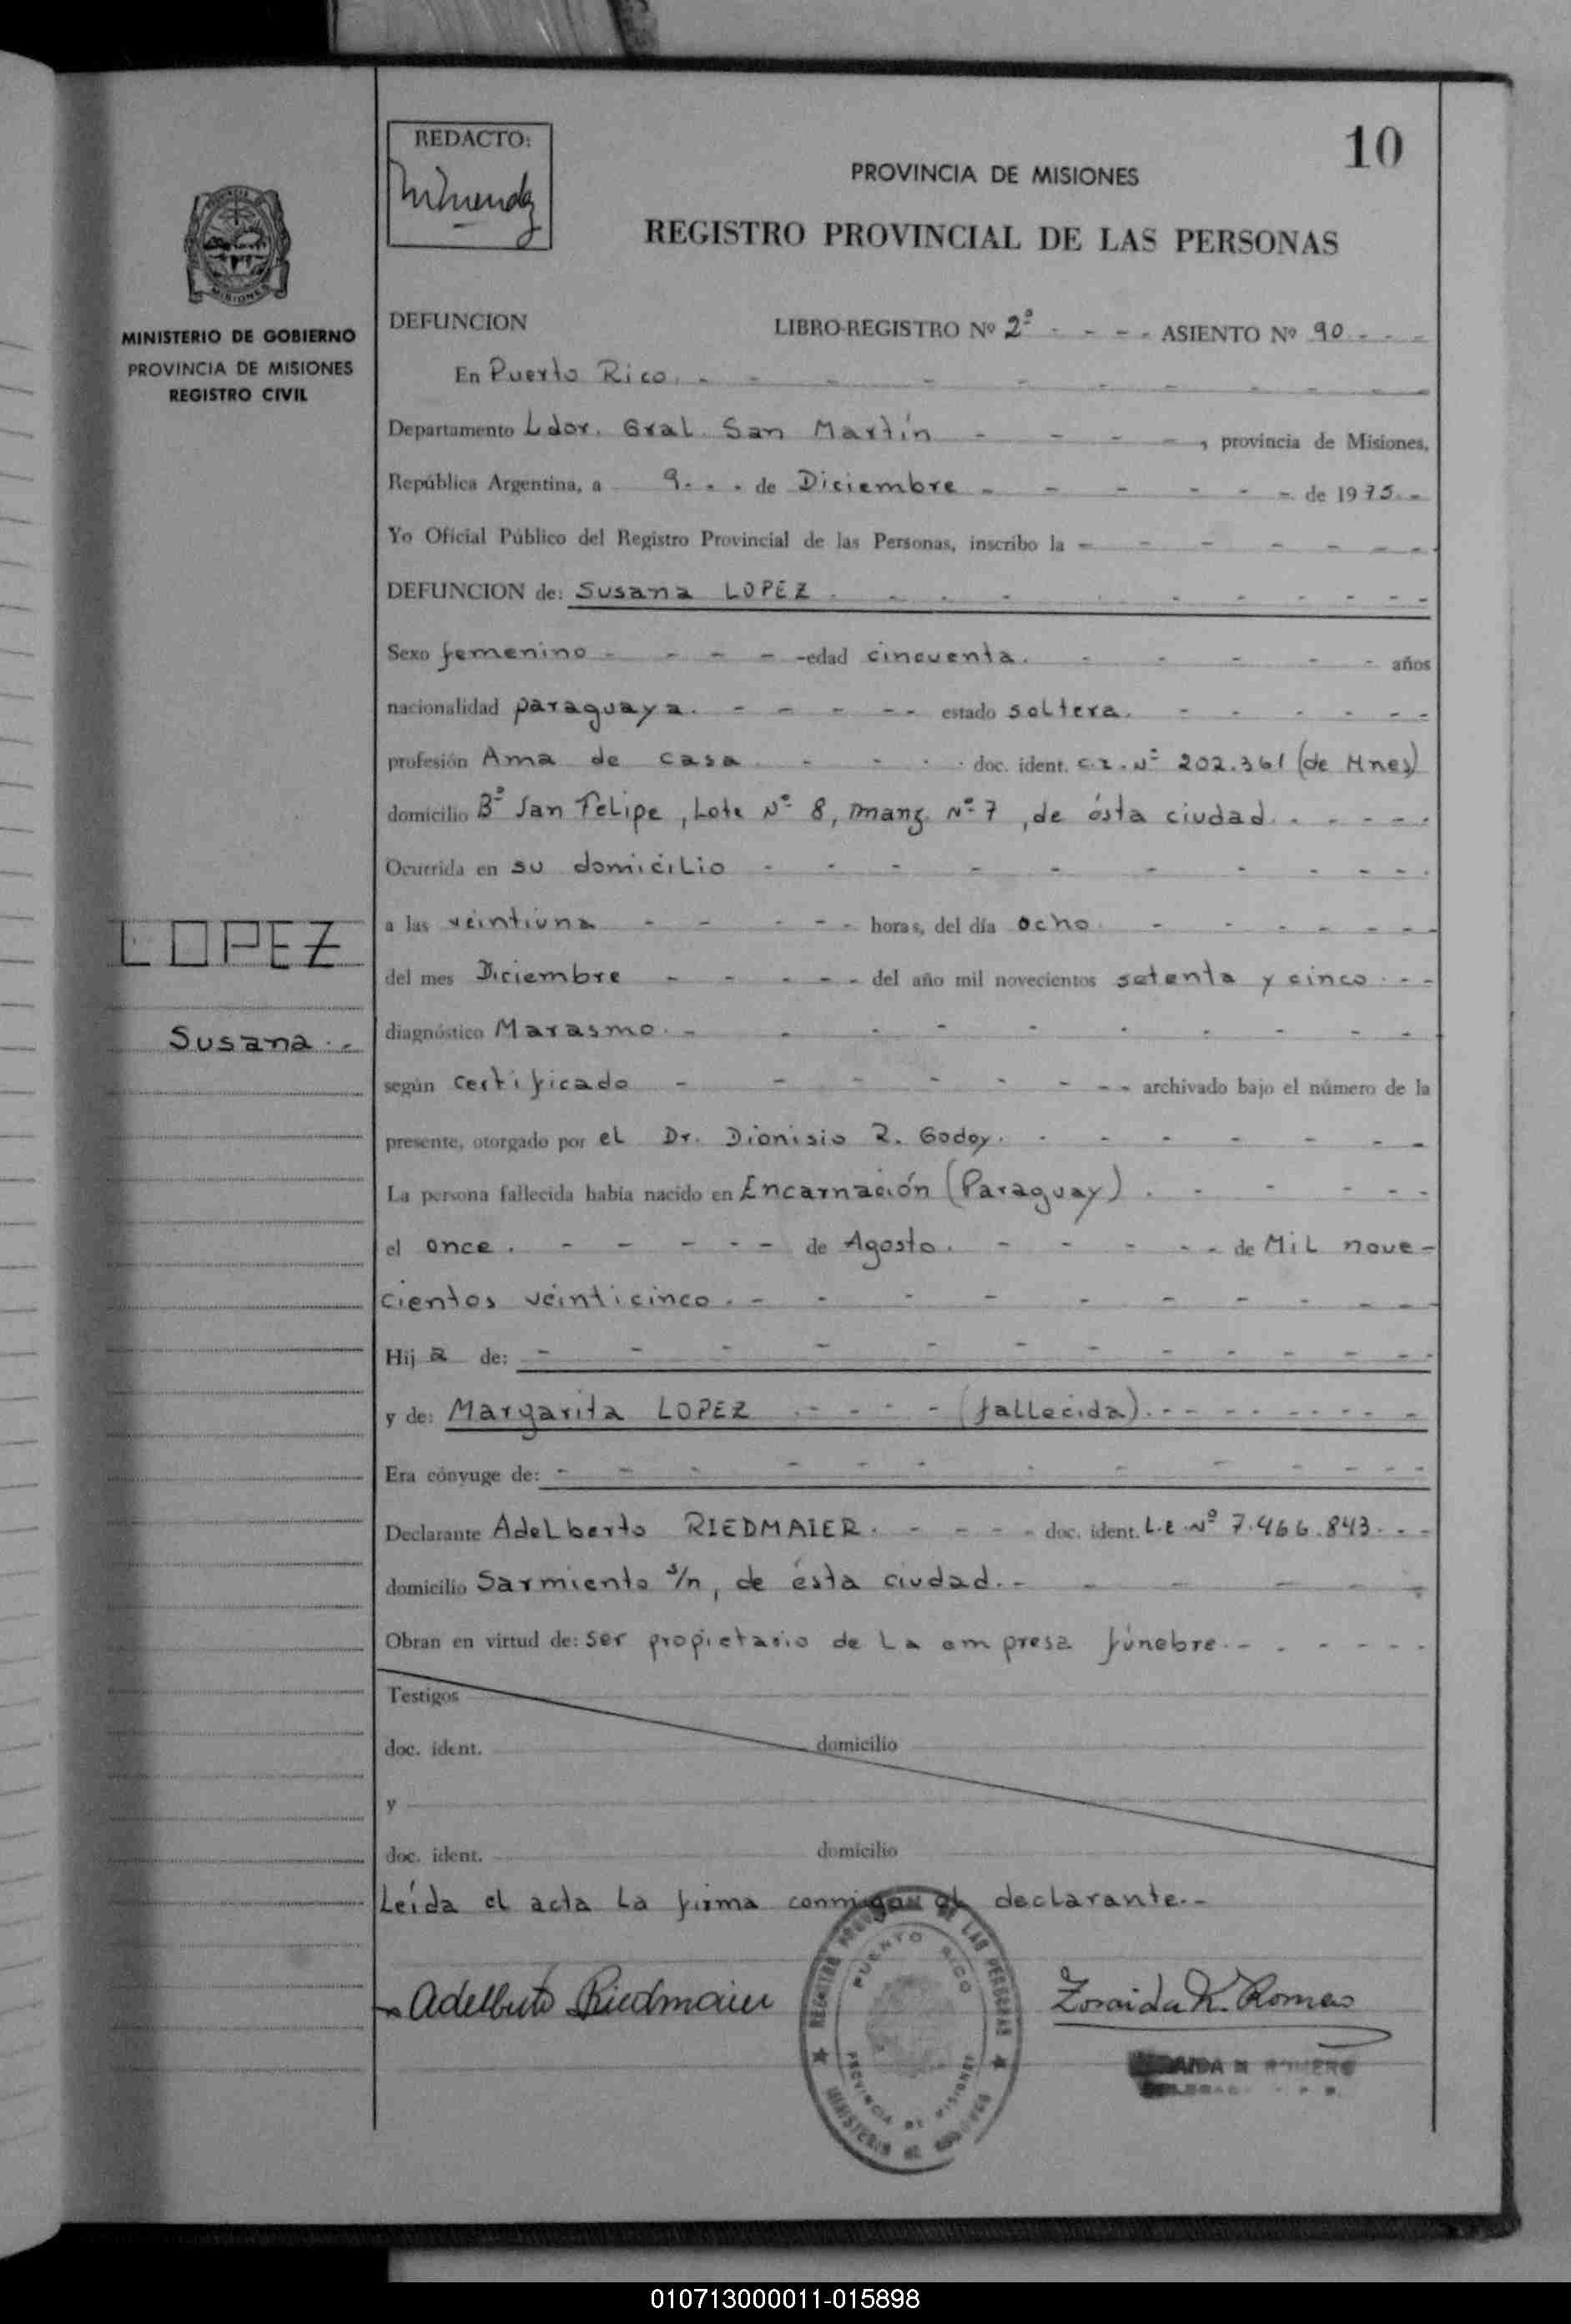 10
REDACTO:
PROVINCIA DE MISIONES
REGISTRO PROVINCIAL DE LAS PERSONAS
MINISTERIO DE GOBIERNO
PROVINCIA DE MISIONES
REGISTRO CIVIL
DEFUNCION LIBRO-REGISTRO Nº 2º - - - - ASIENTO Nº 90 - - -
En Puerto Rico. - - - - - - - - -
Departamento Ldor. Gral. San Martín - - - - , provincia de Misiones,
República Argentina, a 9 - - - de Diciembre - - - - - - de 1975. -
Yo Oficial Público del Registro Provincial de las Personas, inscribo la - - - - - - -
DEFUNCION de: Susana LOPEZ. - - - - - - - - - -
Sexo femenino - - - - -edad cincuenta. - - - - - años
nacionalidad paraguaya. - - - - - estado soltera. - - - - - -
profesión Ama de casa - - - - - doc. ident. C.I. Nº 202.361 (de Mnes)
domicilio Bº San Felipe, Lote Nº 8, manz. Nº 7, de ésta ciudad. - - - - -
Ocurrida en su domicilio - - - - - - - - - -
LOPEZ
Susana. -
a las veintiuna - - - - - horas, del día ocho - - - - - - -
del mes Diciembre - - - - - del año mil novecientos setenta y cinco - - -
diagnóstico Marasmo. - - - - - - - - - -
según certificado - - - - - - - - archivado bajo el número de la
presente, otorgado por el Dr. Dionisio R. Godoy. - - - - - - - -
La persona fallecida había nacido en Encarnación (Paraguay). - - - - - -
el once. - - - - - de Agosto. - - - - - de Mil nove-
cientos veinticinco. - - - - - - - - - - -
Hij a de: - - - - - - - - - - - -
y de: Margarita LOPEZ - - - - (fallecida). - - - - - - - - -
Era cónyuge de: - - - - - - - - - - - -
Declarante Adelberto RIEDMAIER. - - - - doc. ident. L.E. Nº 7.466.843. - -
domicilio Sarmiento s/n, de ésta ciudad. - - - - - -
Obran en virtud de: ser propietario de la empresa fúnebre. - - - - - -
Testigos
doc. ident. domicilio
y
doc. ident. domicilio
Leída el acta la firma conmigo el declarante. -
Adelberto Riedmaier
REGISTRO DE LAS PERSONAS
PUERTO RICO
PROVINCIA DE MISIONES
MINISTERIO DE GOBIERNO
Zoraida N. Romero
010713000011-015898